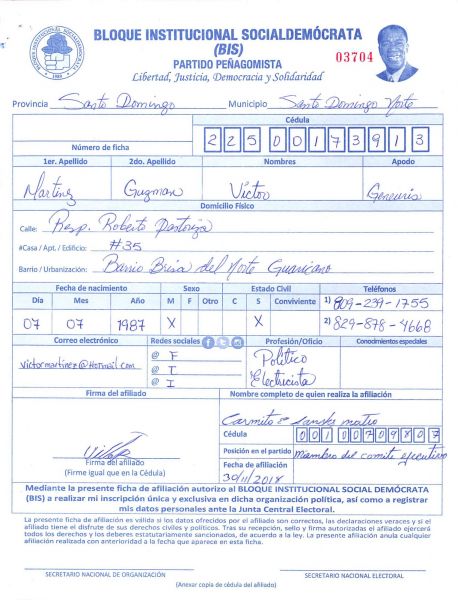 BLOQUE INSTITUCIONAL SOCIALDEMÓCRATA
(BIS)
PARTIDO PEÑAGOMISTA
03704
Libertad, Justicia, Democracia y Solidaridad
BLOQUE INSTITUCIONAL SOCIALDEMOCRATA
Provincia Santo Domingo Municipio Santo Domingo Norte
Cédula
Número de ficha 22500173913
1er. Apellido 2do. Apellido Nombres Apodo
Martinez Guzman Victor
Domicilio Físico
Calle: Resp. Roberto Pastoriza
#Casa / Apt. / Edificio: #35
Barrio / Urbanización: Barrio Brisa del Norte Guaricano
Fecha de nacimiento Sexo Estado Civil Teléfonos
Día Mes Año M F Otro C S Conviviente 1) 809-239-1755
07 07 1987 X X 2) 829-878-4668
Correo electrónico Redes sociales Profesión/Oficio Conocimientos especiales
victormartinez@Hotmail.com @ F Político
@ T Electricista
@ I
Firma del afiliado Nombre completo de quien realiza la afiliación
Cédula 00100709807
Posición en el partido miembro del comite ejecutivo
Firma del afiliado
(Firme igual que en la Cédula)
Fecha de afiliación
30/11/2018
Mediante la presente ficha de afiliación autorizo al BLOQUE INSTITUCIONAL SOCIAL DEMÓCRATA
(BIS) a realizar mi inscripción única y exclusiva en dicha organización política, así como a registrar
mis datos personales ante la Junta Central Electoral.
La presente ficha de afiliación en válida si los datos ofrecidos por el afiliado son correctos, las declaraciones veraces y si el
afiliado tiene el disfrute de sus derechos civiles y políticos. Tras su recepción, sello y firma autorizadas el afiliado ejercerá
todos los derechos y los deberes estatutariamente sancionados, de acuerdo a la ley. La presente afiliación anula cualquier
afiliación realizada con anterioridad a la fecha que aparece en esta ficha.
SECRETARIO NACIONAL DE ORGANIZACIÓN SECRETARIO NACIONAL ELECTORAL
(Anexar copia de cédula del afiliado)